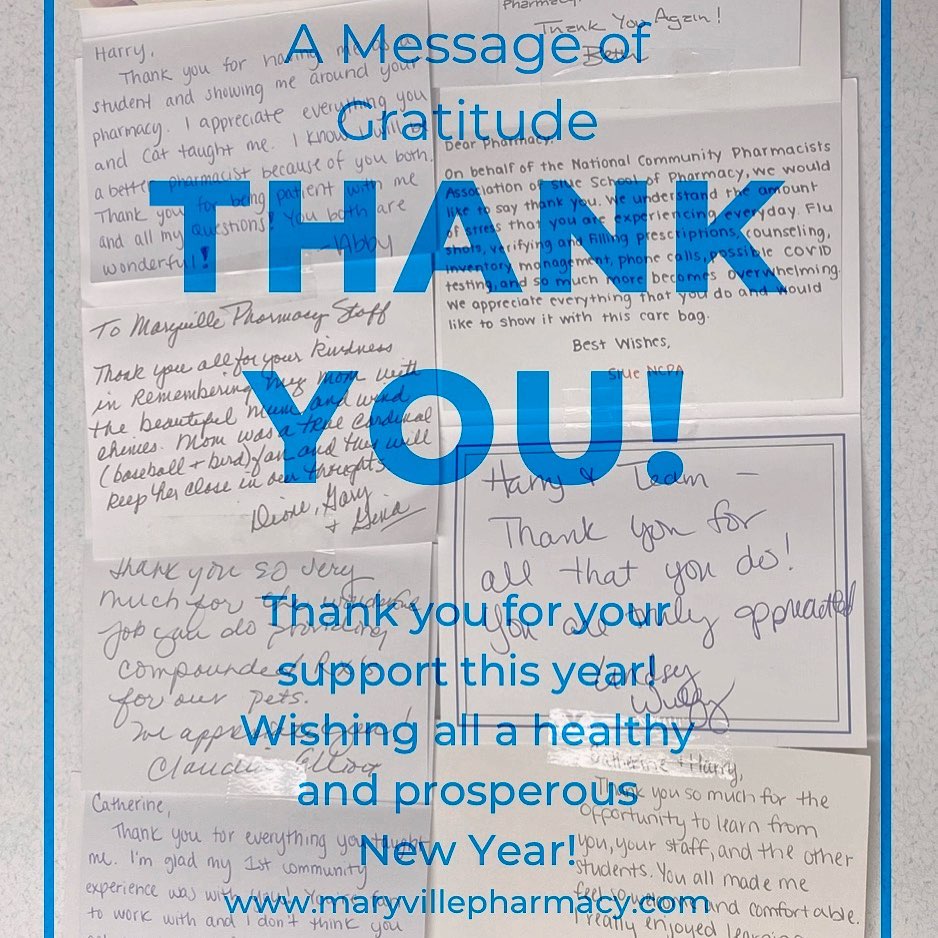 A Message of
Gratitude
THANK
YOU!
Thank you for your
support this year!
Wishing all a healthy
and prosperous
New Year!
www.maryvillepharmacy.com
Pharmacy.
Thank You Again!
Beth
Harry,
Thank you for having me as a
student and showing me around your
pharmacy. I appreciate everything you
and Cat taught me. I know I will be
a better pharmacist because of you both.
Thank you for being patient with me
and all my questions! You both are
wonderful! -Abby
Dear Pharmacy,
On behalf of the National Community Pharmacists
Association of SIUE School of Pharmacy, we would
like to say thank you. We understand the amount
of stress that you are experiencing everyday. Flu
shots, verifying and filling prescriptions, counseling,
inventory management, phone calls, possible COVID
testing, and so much more becomes overwhelming.
We appreciate everything that you do and would
like to show it with this care bag.
Best Wishes,
SIUE NCPA
To Maryville Pharmacy Staff
Thank you all for your kindness
in Remembering my mom with
the beautiful mum and wind
chimes. Mom was a true Cardinal
(baseball + bird) fan and this will
keep her close in our thoughts
Diane, Gary
+ Gina
Harry & Team -
Thank you for
all that you do!
You are truly appreciated
Lindsey
thank you so very
much for the wonderful
job you do providing
compounded Rx's
for our pets.
We appreciate you!
Claudia Elliott
Catherine + Harry,
Thank you so much for the
opportunity to learn from
you, your staff, and the other
students. You all made me
feel so welcome and comfortable.
I really enjoyed learning
Catherine,
Thank you for everything you taught
me. I'm glad my 1st community
experience was with you! You're fun
to work with and I don't think you